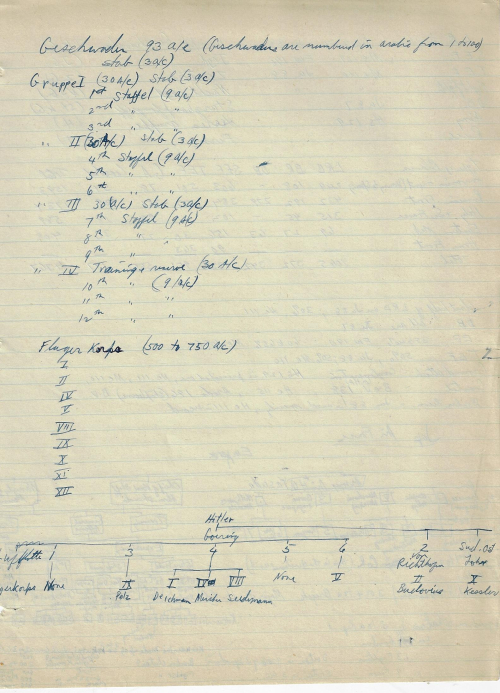 Geschwader 93 a/c (Geschwaders are numbered in arabic from 1 to 100)
Stab (3 a/c)
Gruppe I (30 A/c) Stab (3 a/c)
1st Staffel (9 a/c)
2nd " "
3rd " "
" II (30 A/c) Stab (3 a/c)
4th Staffel (9 a/c)
5th " "
6th " "
" III 30 a/c) Stab (3 a/c)
7th Staffel (9 A/c)
8th "
9th "
" IV Training & reserve (30 A/c)
10th " (9 a/c)
11th " "
12th " "
Flieger Korps (500 to 750 a/c)
I
II
IV
V
VIII
IX
X
XI
XII
Hitler
Goering
1 3 4 5 6 2 Sud.Ost
Von Richthofen
None IX I IV VIII None V II X
Pelz Deichman Seidemann Buelovius Kessler